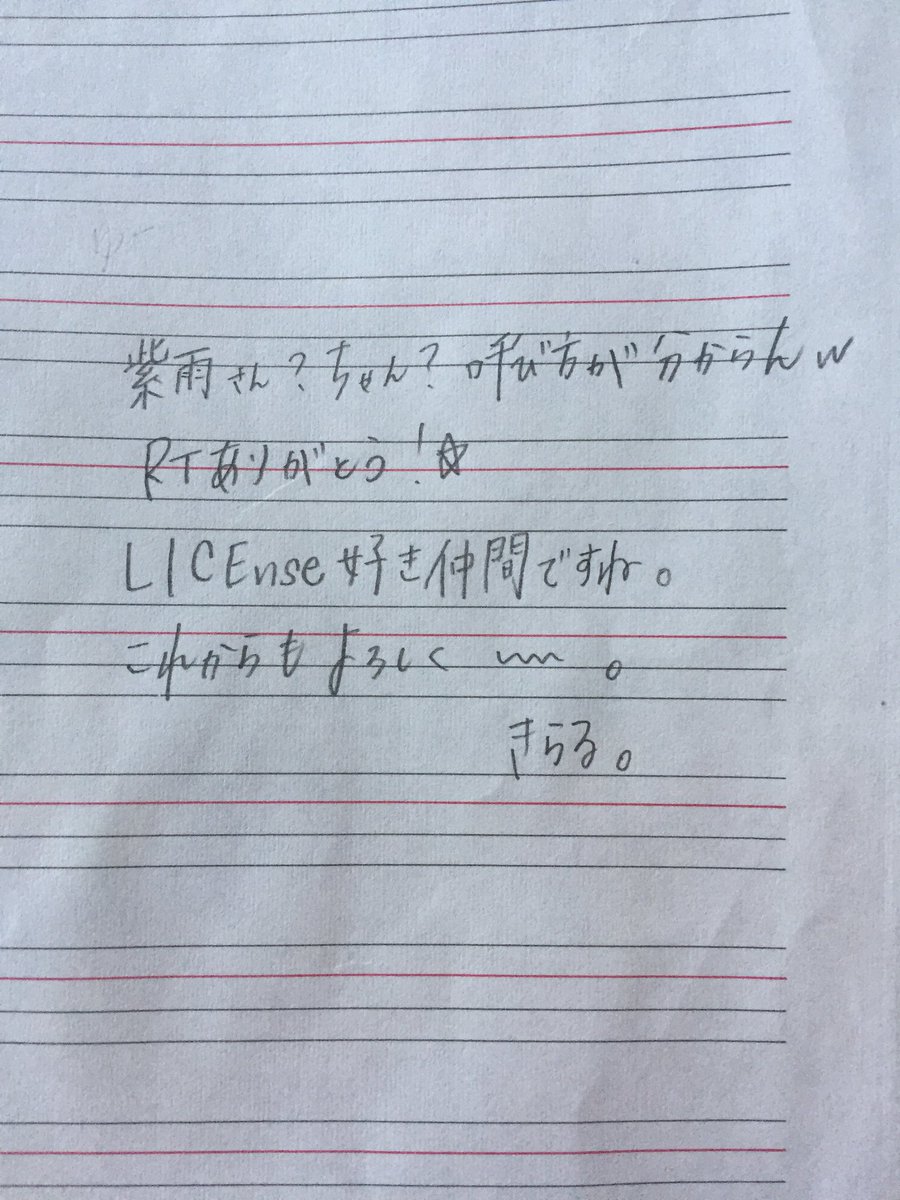 紫雨さん?ちゃん?呼び方が分からんw
RTありがとう!☆
LICEnse好き仲間ですね。
これからもよろしく 〰。
きらる。